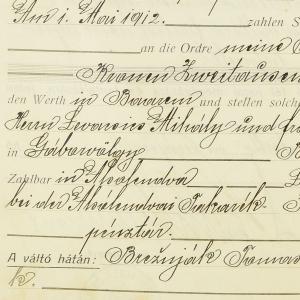 Am 1. Mai 1912. zahlen S
an die Ordre meine
Kronen Zweitausen
den Werth in Baarem und stellen solch
Herrn Levancic Mihály und fr
in Gáborvölgy
Zahlbar in Alsólendva
bei der Alsólendvai Takarék
pénztár.
A váltó hátán: Breznják Tamás
k.